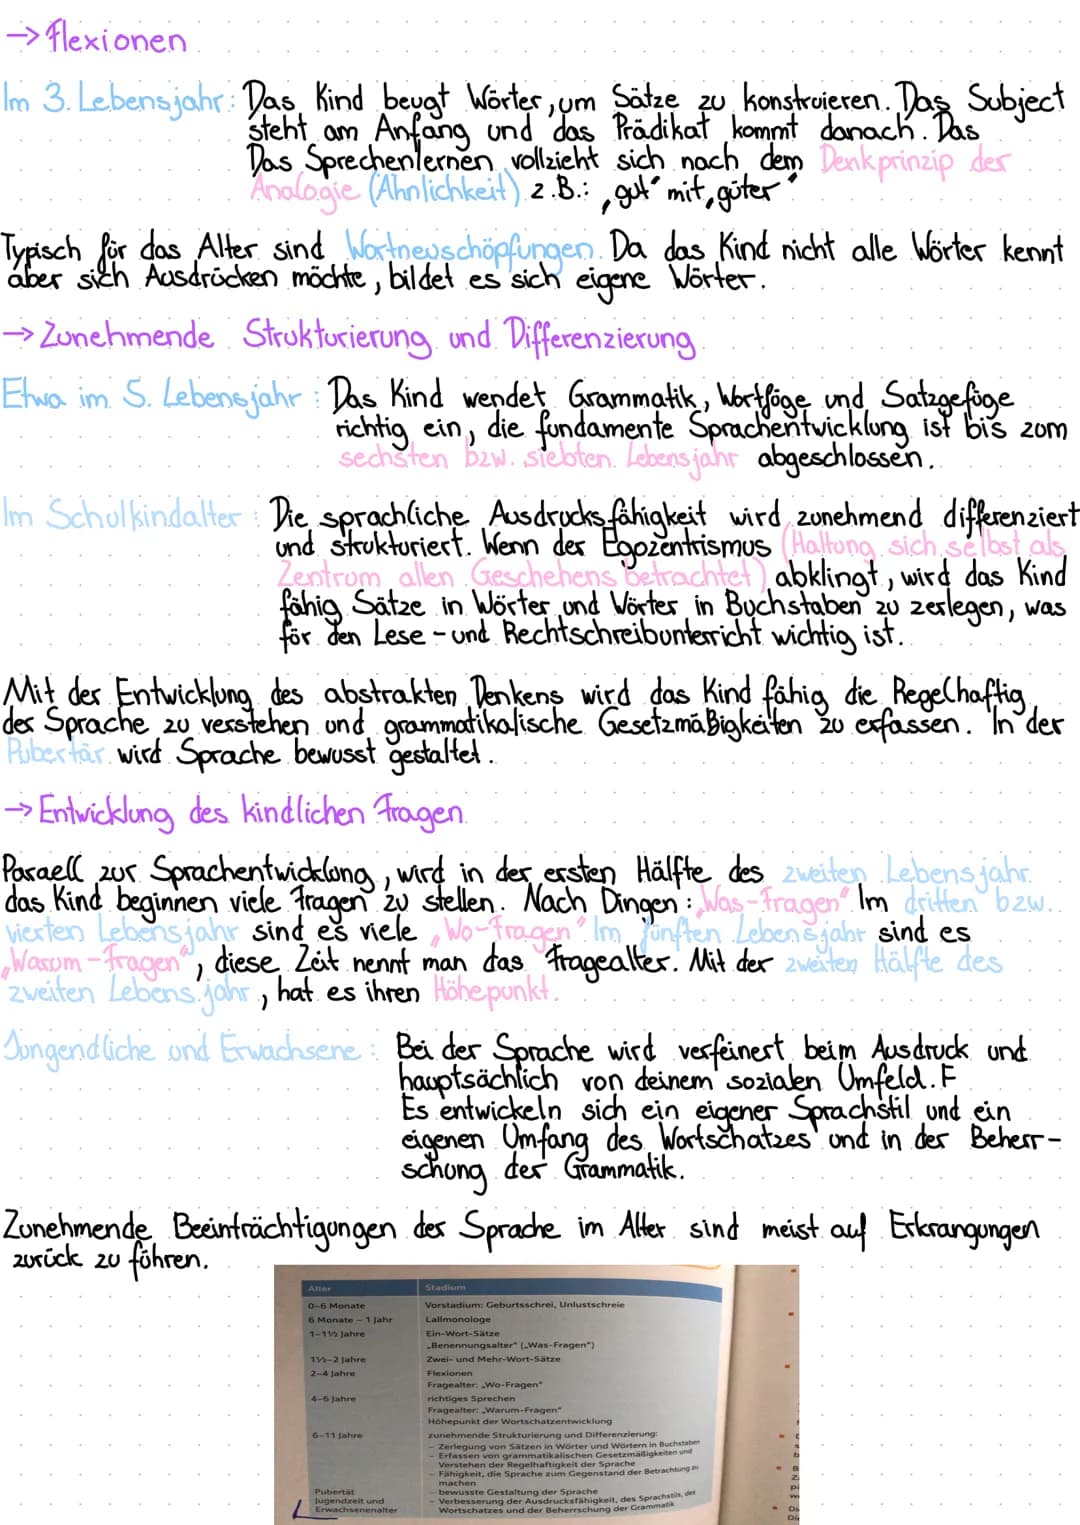 → Flexionen
Im 3. Lebensjahr: Das Kind beugt Wörter, um Sätze zu konstruieren. Das Subject
steht am Anfang und das Prädikat kommt danach. Das
Das Sprechenlernen vollzieht sich nach dem Denkprinzip der
Analogie (Ähnlichkeit) z.B.: „gut“ mit „güter“
Typisch für das Alter sind Wortneuschöpfungen. Da das Kind nicht alle Wörter kennt
aber sich Ausdrücken möchte, bildet es sich eigene Wörter.
→ Zunehmende Strukturierung und Differenzierung
Etwa im 5. Lebensjahr: Das Kind wendet Grammatik, Wortfüge und Satzgefüge
richtig ein, die fundamente Sprachentwicklung ist bis zum
sechsten bzw. siebten Lebensjahr abgeschlossen.
Im Schulkindalter: Die sprachliche Ausdrucksfähigkeit wird zunehmend differenziert
und strukturiert. Wenn der Egozentrismus (Haltung, sich selbst als
Zentrum allen Geschehens betrachtet) abklingt, wird das Kind
fähig Sätze in Wörter und Wörter in Buchstaben zu zerlegen, was
für den Lese- und Rechtschreibunterricht wichtig ist.
Mit der Entwicklung des abstrakten Denkens wird das Kind fähig die Regelhaftig
der Sprache zu verstehen und grammatikalische Gesetzmäßigkeiten zu erfassen. In der
Pubertär wird Sprache bewusst gestaltet.
→ Entwicklung des kindlichen Fragen
Paraell zur Sprachentwicklung, wird in der ersten Hälfte des zweiten Lebensjahr
das Kind beginnen viele Fragen zu stellen. Nach Dingen: „Was-Fragen“. Im dritten bzw.
vierten Lebensjahr sind es viele „Wo-Fragen“. Im fünften Lebensjahr sind es
„Warum-Fragen“, diese Zeit nennt man das Fragealter. Mit der zweiten Hälfte des
zweiten Lebensjahr, hat es ihren Höhepunkt.
Jungendliche und Erwachsene: Bei der Sprache wird verfeinert beim Ausdruck und
hauptsächlich von deinem sozialen Umfeld. F
Es entwickeln sich ein eigener Sprachstil und ein
eigenen Umfang des Wortschatzes und in der Beherr-
schung der Grammatik.
Zunehmende Beeinträchtigungen der Sprache im Alter sind meist auf Erkrangungen
zurück zu führen.
Alter Stadium
0–6 Monate Vorstadium: Geburtsschrei, Unlustschreie
6 Monate – 1 Jahr Lallmonologe
1–1½ Jahre Ein-Wort-Sätze
„Benennungsalter“ („Was-Fragen“)
1½–2 Jahre Zwei- und Mehr-Wort-Sätze
2–4 Jahre Flexionen
Fragealter: „Wo-Fragen“
4–6 Jahre richtiges Sprechen
Fragealter: „Warum-Fragen“
Höhepunkt der Wortschatzentwicklung
6–11 Jahre zunehmende Strukturierung und Differenzierung:
– Zerlegung von Sätzen in Wörter und Wörtern in Buchstaben
– Erfassen von grammatikalischen Gesetzmäßigkeiten und
Verstehen der Regelhaftigkeit der Sprache
– Fähigkeit, die Sprache zum Gegenstand der Betrachtung zu
machen
Pubertät – bewusste Gestaltung der Sprache
Jugendzeit und – Verbesserung der Ausdrucksfähigkeit, des Sprachstils, des
Erwachsenenalter Wortschatzes und der Beherrschung der Grammatik